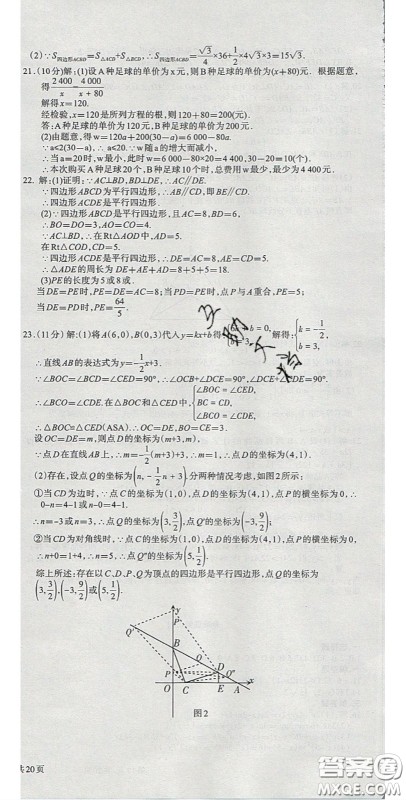 (2)∵S四边形ACBD=S△ACD+S△BCD,∴S四边形ACBD=√3/4×36+1/2×4√3×3=15√3.
21.(10分)解:(1)设A种足球的单价为x元,则B种足球的单价为(x+80)元. 根据题意,
得2 400/x=4 000/(x+80)
解得x=120.
经检验,x=120是所列方程的根,则120+80=200(元).
答:A种足球的单价为120元,B种足球的单价为200元.
(2)由题意,得w=120a+200(30-a)=6 000-80a.
∵a≤2(30-a),∴a≤20.∵w随a的增大而减小,
∴当a=20时,w最小,此时w=6 000-80×20=4 400,30-20=10(个).
∴本次购买A种足球20个,B种足球10个时,总费用w最少,最少为4 400元.
22. 解:(1)证明:∵AC⊥BD,BD⊥DE,∴AC∥DE.
∵四边形ABCD为平行四边形,∴AB∥CD,即BE∥CD.
∴四边形ACDE为平行四边形.
(2)∵四边形ABCD是平行四边形,且AC=8,BD=6,
∴BO=DO=3,AO=CO=4.
∵AC⊥BD,∴在Rt△AOD中,AD=5.
在Rt△COD,CD=5.
∵四边形ACDE是平行四边形,∴DE=AC=8,AE=CD=5.
∴△ADE的周长为DE+AE+AD=8+5+5=18.
(3)PE的长度为5或8或
当DE=PE时,PE=DE=AC=8;当PD=PE时,点P与A重合,PE=5;
当DE=PD时,PE=64/5.
23.(11分)解:(1)将A(6,0),B(0,3)代入y=kx+b得 =0, 解得:{k=-1/2, b=3,
∴直线AB的表达式为y=-1/2x+3.
∵∠BOC=∠BCD=∠CED=90°,∴∠OCB+∠DCE=90°,∠DCE+∠CDE=90°,
∴∠BCO=∠CDE.在△BOC和△CED中,{∠BOC=∠CED, BC=CD, ∠BCO=∠CDE,
∴△BOC≌△CED(ASA).∴OC=DE,BO=CE=3.
设OC=DE=m,则点D的坐标为(m+3,m),
∵点D在直线AB上,∴m=-1/2(m+3)+3,∴m=1.
∴点D的坐标为(4,1).
(2)存在,设点Q的坐标为(n,-1/2n+3).分两种情况考虑,如图2所示:
①当CD为边时,∵点C的坐标为(1,0),点D的坐标为(4,1),点P的横坐标为0,∴
0-n=4-1或n-0=4-1.
∴n=-3或n=3,∴点Q的坐标为(3,3/2),点Q'的坐标为(-3,9/2);
②当CD为对角线时,∵点C的坐标为(1,0),点D的坐标为(4,1),点P的横坐标为0,
∴n+0=1+4,∴n=5,∴点Q''的坐标为(5,1/2).
综上所述:存在以C、D、P、Q为顶点的四边形是平行四边形,点Q的坐标为
(3,3/2),(-3,9/2)或(5,1/2).
y
P'
Q'
B
Q
P
D
Q''
O
C
E
A
x
图2
共20页
答案圈
MXQE.COM